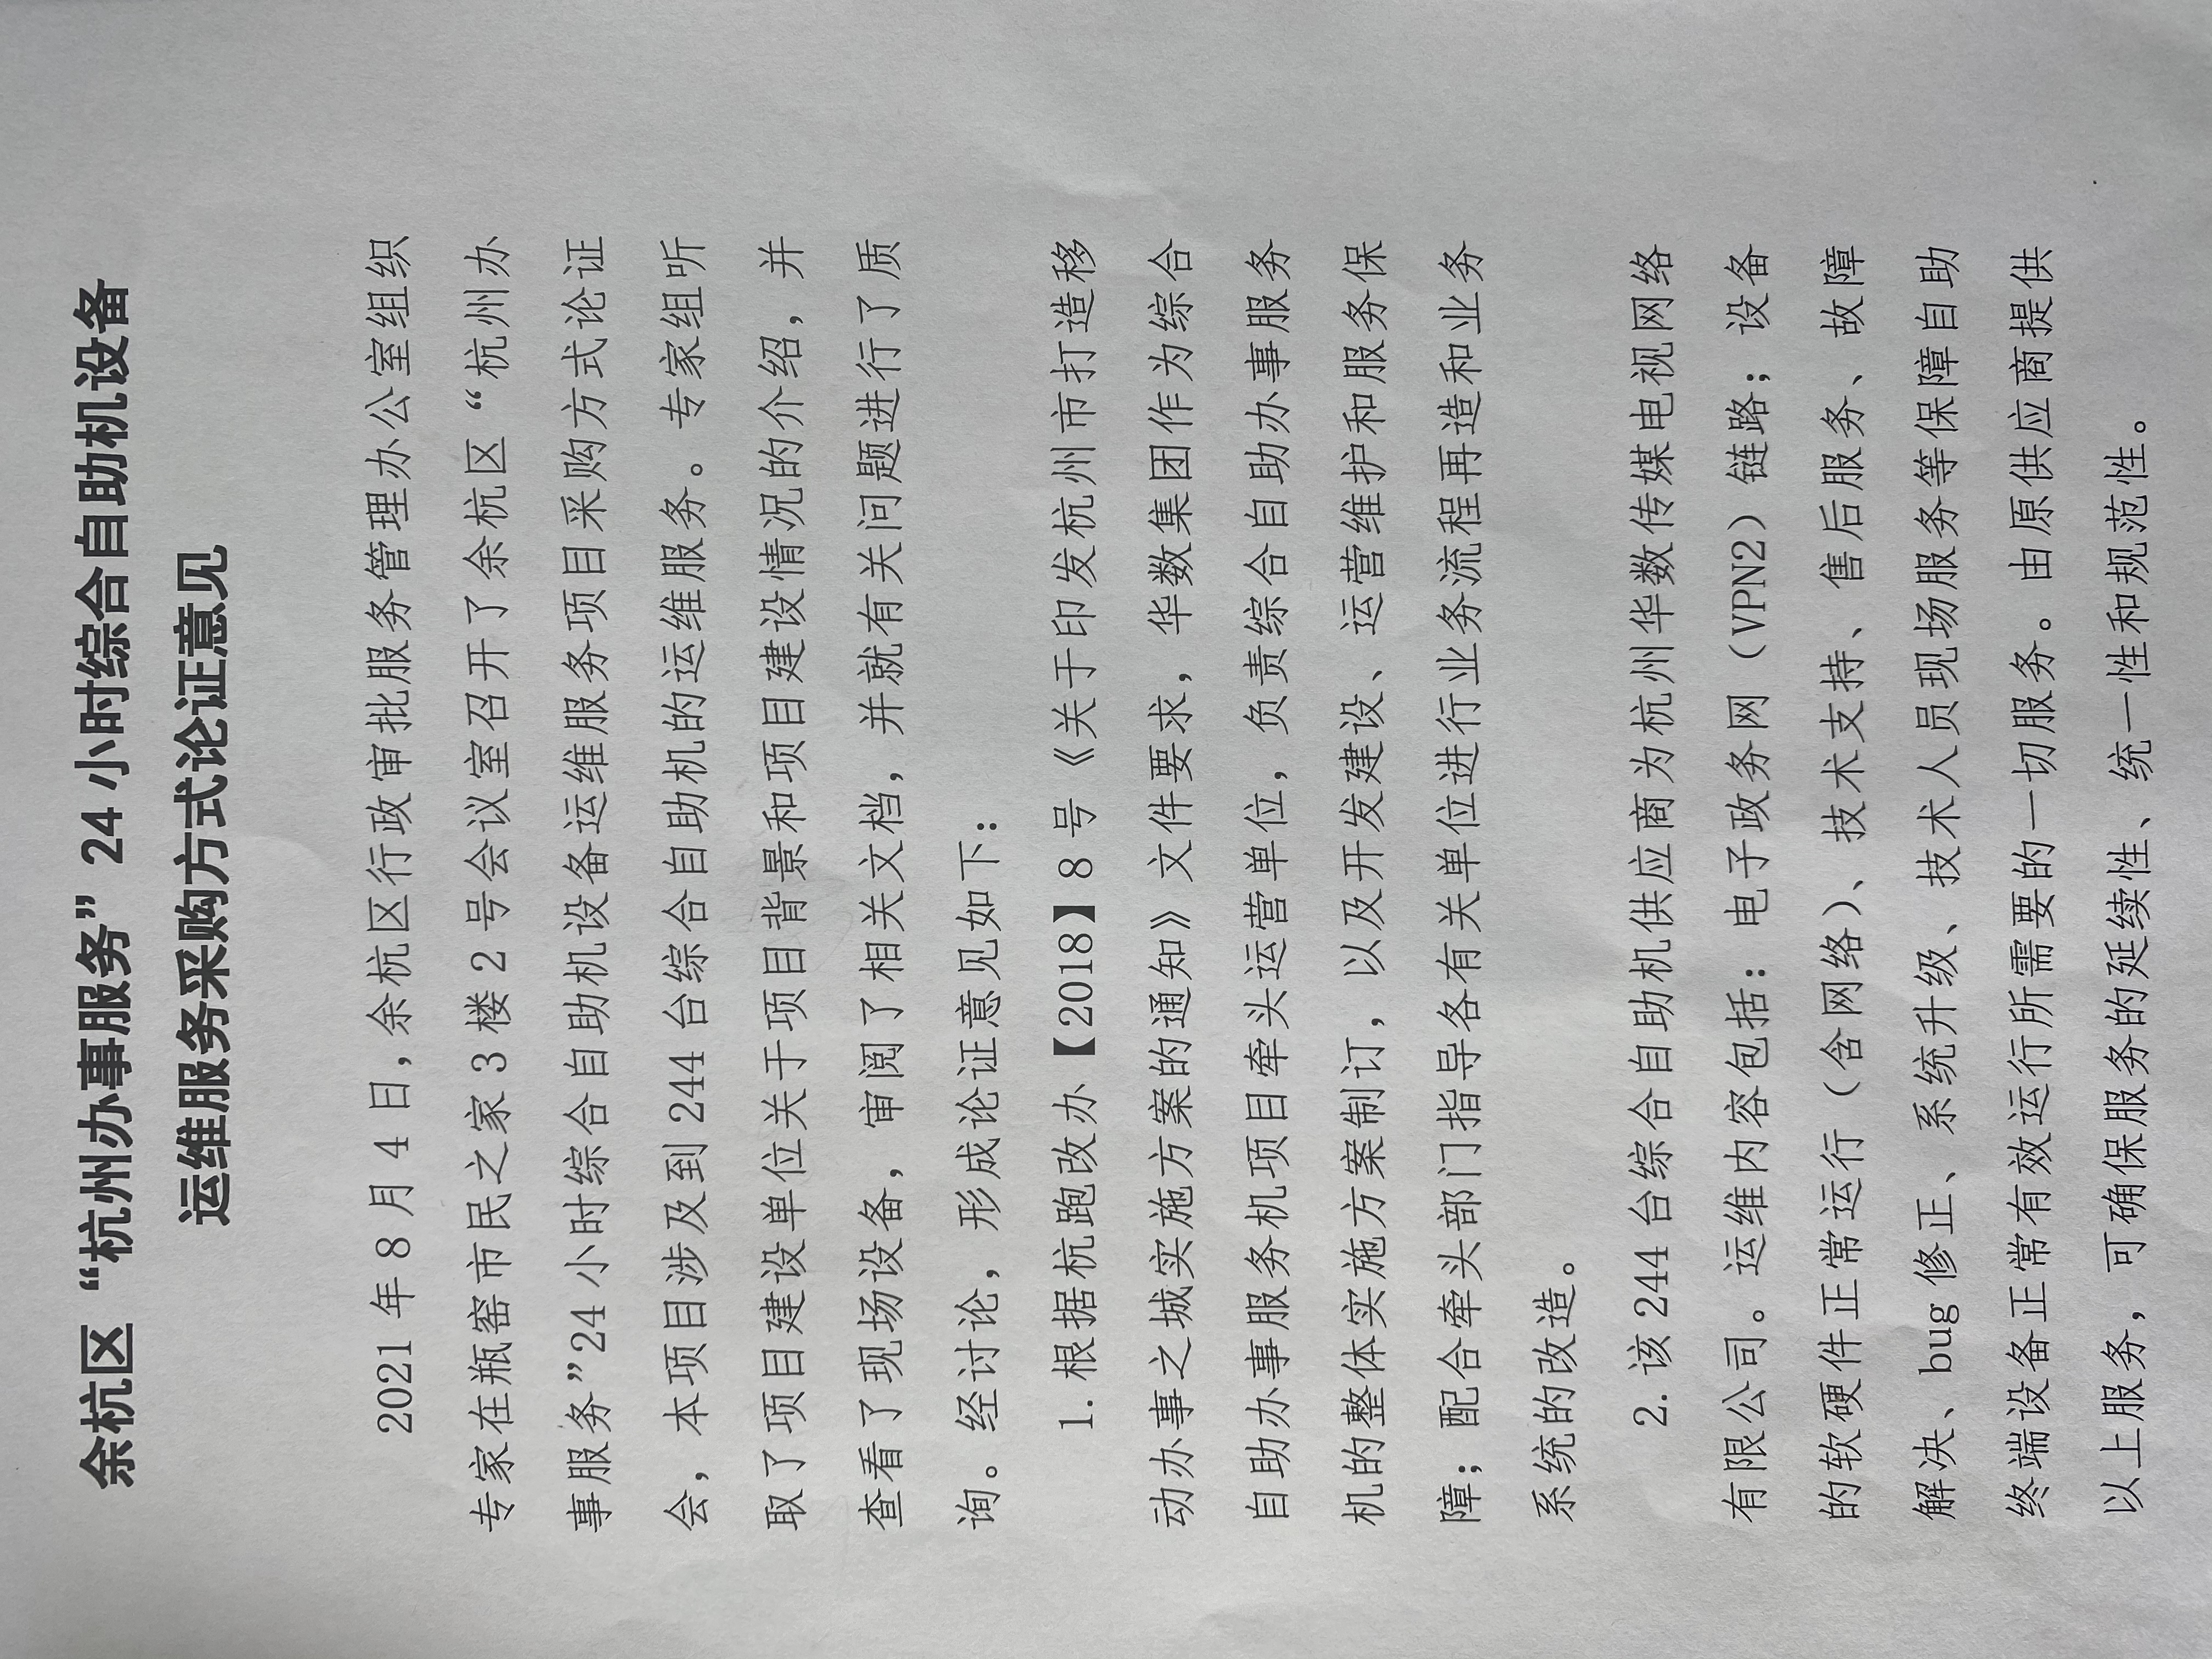 余杭区“杭州办事服务”24小时综合自助机设备
运维服务采购方式论证意见
2021年8月4日,余杭区行政审批服务管理办公室组织
专家在瓶窑市民之家3楼2号会议室召开了余杭区“杭州办
事服务”24小时综合自助机设备运维服务项目采购方式论证
会，本项目涉及到244台综合自助机的运维服务。专家组听
取了项目建设单位关于项目背景和项目建设情况的介绍，并
查看了现场设备，审阅了相关文档，并就有关问题进行了质
询。经讨论，形成论证意见如下：
1.根据杭跑改办【2018】8号《关于印发杭州市打造移
动办事之城实施方案的通知》文件要求，华数集团作为综合
自助办事服务机项目牵头运营单位，负责综合自助办事服务
机的整体实施方案制订，以及开发建设、运营维护和服务保
障；配合牵头部门指导各有关单位进行业务流程再造和业务
系统的改造。
2.该244台综合自助机供应商为杭州华数传媒电视网络
有限公司。运维内容包括：电子政务网（VPN2）链路；设备
的软硬件正常运行（含网络）、技术支持、售后服务、故障
解决、bug修正、系统升级、技术人员现场服务等保障自助
终端设备正常有效运行所需要的一切服务。由原供应商提供
以上服务，可确保服务的延续性、统一性和规范性。